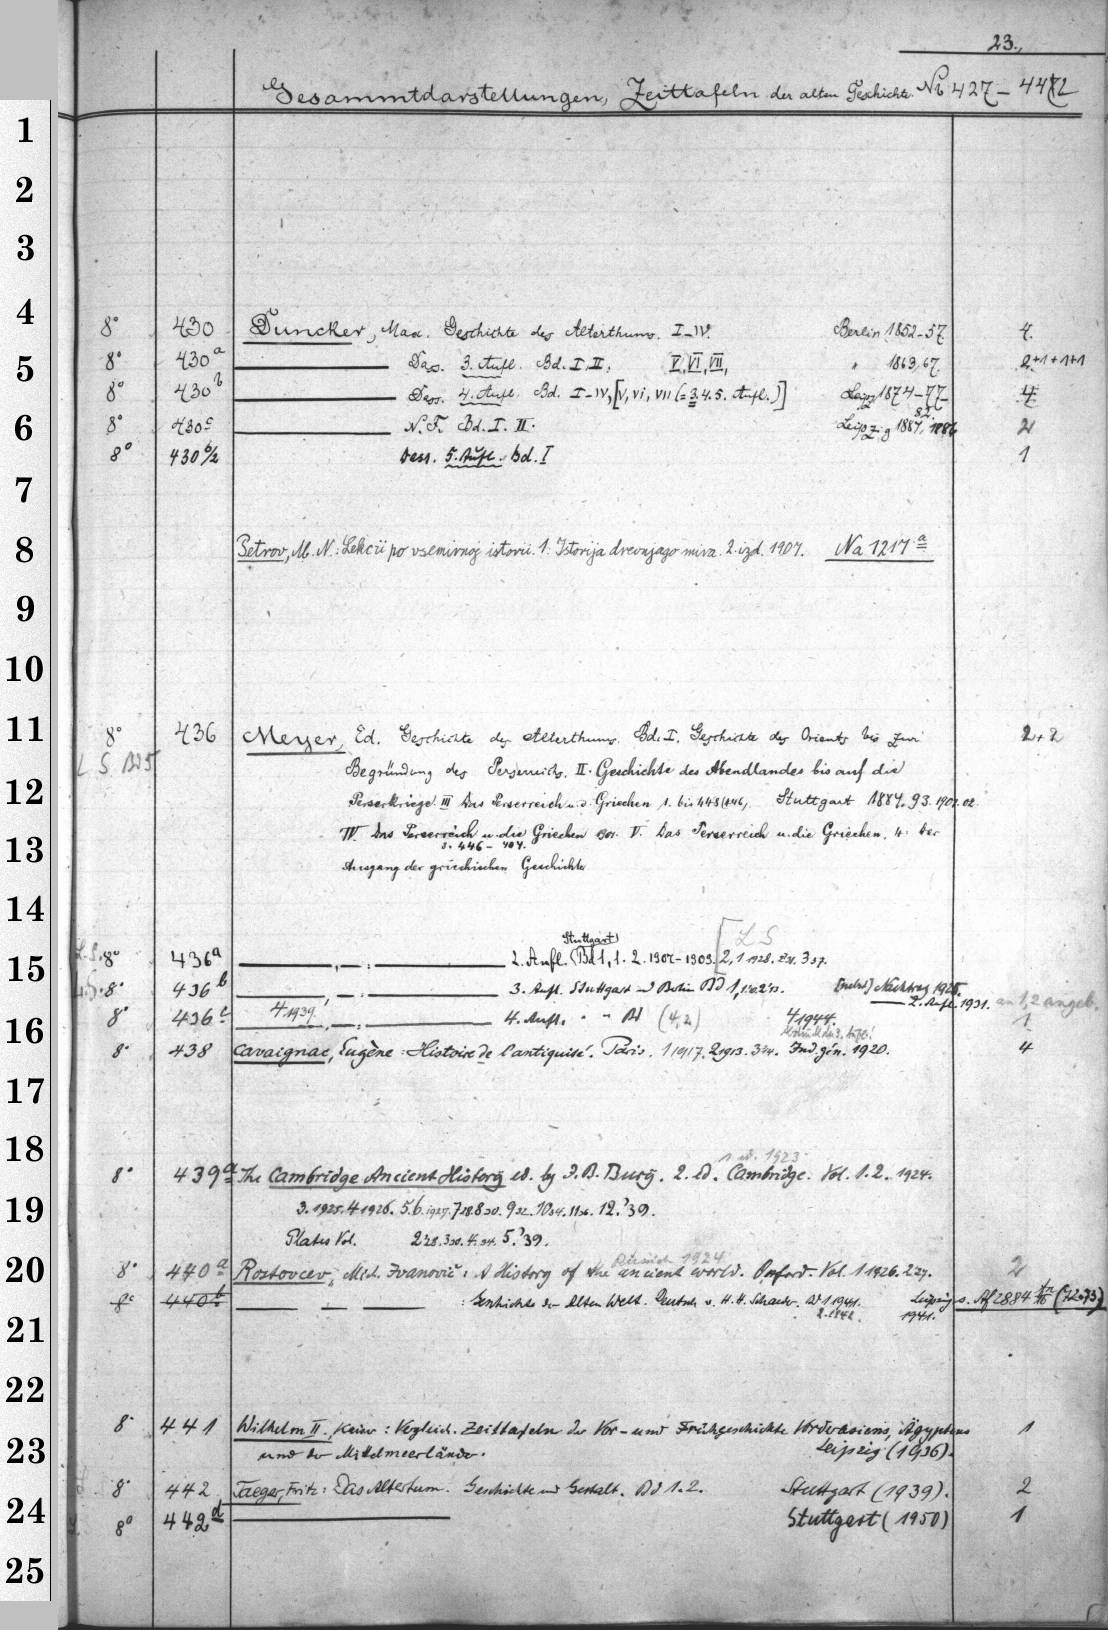 23.
Gesammtdarstellungen, Zeittafeln der alten Geschichte. No 427 - 442
8° 430 Duncker, Max. Geschichte des Alterthums. I-IV. Berlin 1852-57 4.
8° 430a Dass. 3. Aufl. Bd. I, II, V, VI, VII, " 1863, 67 2+1+1+1
8° 430b Dass. 4. Aufl. Bd. I-IV, [V, VI, VII (= 3.4.5. Aufl.)] Leipz 1874-77 4
8° 430c N. F. Bd. I. II. Leipzig 1884, 1886 2
8° 430b/2 Dass. 5. Aufl. Bd. I 1
Petrov, M. N.: Lekcii po vsemirnoj istorii. 1: Istorija drevnjago mira. 2. izd. 1907. Na 1217a
8° 436 Meyer, Ed. Geschichte des Alterthums. Bd. I. Geschichte des Orients bis zur 2+2
LS Bd 5 Begründung des Perserreichs. II. Geschichte des Abendlandes bis auf die
Perserkriege. III Das Perserreich u. d. Griechen 1. bis 448 (446, Stuttgart 1884. 93. 1901. 02
IV. Das Perserreich u. die Griechen 1901. V. Das Perserreich u. die Griechen. 4: Der
3. 446 - 404.
Ausgang der griechischen Geschichte
L.S. 8° 436a — , — : — 2. Aufl. (Stuttgart) Bd 1, 1. 2. 1907-1909. [2,1 1928. 2 31. 3 37. LS
L.S. 8° 436b — , — : — 3. Aufl. Stuttgart u Berlin Bd 1, 1 2 13. Nachtrag 1925.
— 2. Aufl. 1931. an 1,2 angeb.
8° 436c 4. 1939. — , — : — 4. Aufl. " " Bd (4,2) 4. 1944. 1
8° 438 Cavaignac, Eugène: Histoire de l'antiquité. Paris. 1 1917. 2 1913. 3 14. Ind. gén. 1920. 4
1 ed. 1923
8° 439a The Cambridge Ancient History ed. by J. B. Bury. 2. ed. Cambridge. Vol. 1. 2. 1924.
3. 1925. 4 1926. 5. 6. 1927. 7 28. 8 30. 9 32. 10 34. 11 36. 12. '39.
Plates Vol. 2 '28. 3 30. 4. 34. 5. '39.
russisch 1924
8° 440a Rostovcev, Mich. Ivanovič: A History of the ancient world. Oxford. Vol. 1 1926. 2 27. 2
8° 440b — — — : Geschichte der Alten Welt. Deutsch v. H. H. Schaeder. Bd 1 1941. Leipzig s. Af 2884 (72.73)
2. 1942. 1941.
8° 441 Wilhelm II., Kaiser: Vergleich. Zeittafeln der Vor- und Frühgeschichte Vorderasiens, Ägyptens 1
und der Mittelmeerländer. Leipzig (1936).
8° 442 Taeger, Fritz: Das Altertum. Geschichte und Gestalt. Bd 1. 2. Stuttgart (1939). 2
8° 442d Stuttgart (1950) 1
1
2
3
4
5
6
7
8
9
10
11
12
13
14
15
16
17
18
19
20
21
22
23
24
25